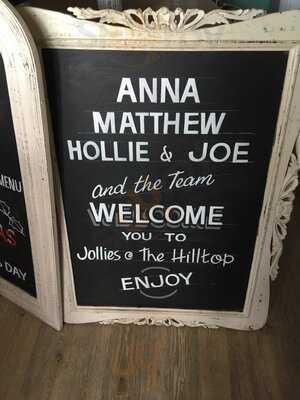 ANNA
MATTHEW
HOLLIE & JOE
and the Team
WELCOME
YOU TO
Jollies @ The Hilltop
ENJOY
MENU
DAY